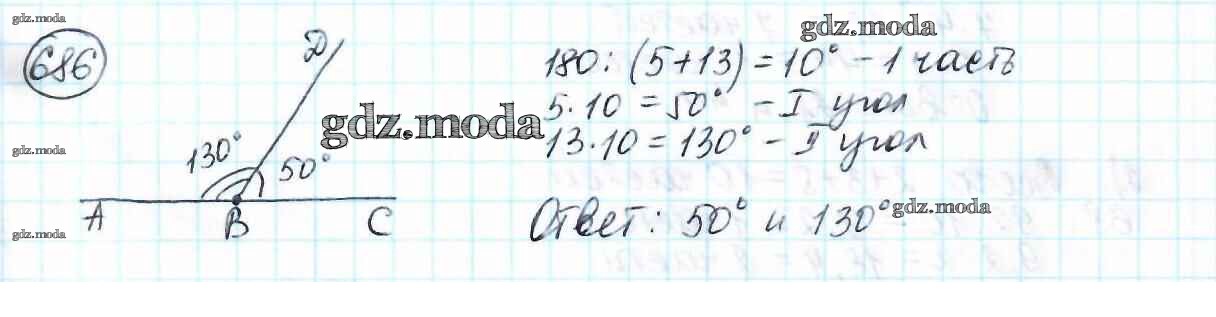 gdz.moda
gdz.moda
686
D
180 : (5+13) = 10° - 1 часть
5·10 = 50° - I угол
gdz.moda
13·10 = 130° - II угол
gdz.moda
130°
50°
A
B
C
Ответ: 50° и 130°
gdz.moda
gdz.moda